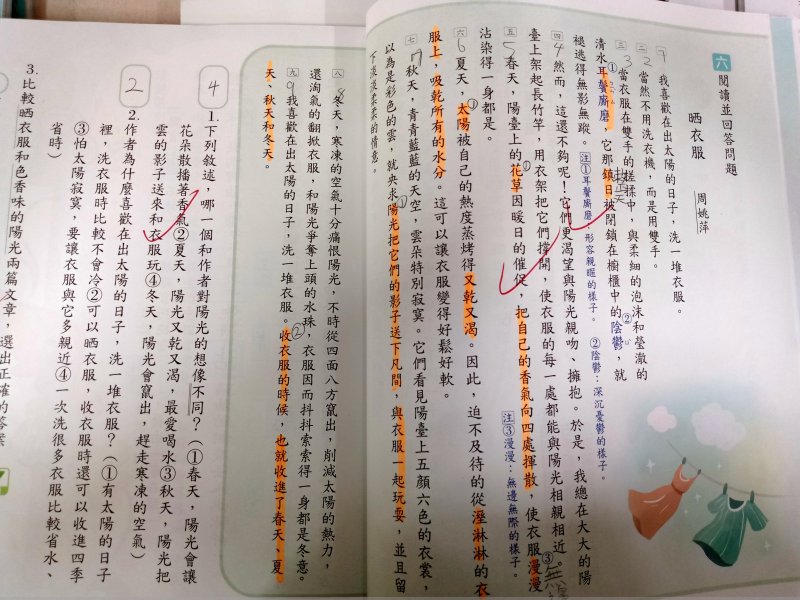 六 閱讀並回答問題
晒衣服 周姚萍
一 我喜歡在出太陽的日子，洗一堆衣服。
二 當然不用洗衣機，而是用雙手。
三 當衣服在雙手的搓揉中，與柔細的泡沫和瑩澈的
清水耳鬢廝磨①，它那鎮日被閉鎖在櫥櫃中的陰鬱②，就
褪逃得無影無蹤。 注①耳鬢廝磨：形容親暱的樣子。 ②陰鬱：深沉憂鬱的樣子。
整天
四 然而，這還不夠呢！它們更渴望與陽光親吻、擁抱。於是，我總在大大的陽
臺上架起長竹竿，用衣架把它們撐開，使衣服的每一處都能與陽光相親相近。
五 春天，陽臺上的花草因暖日的催促，把自己的香氣向四處揮散，使衣服漫漫③
沾染得一身都是。 注③漫漫：無邊無際的樣子。
六 夏天，太陽被自己的熱度蒸烤得又乾又渴。因此，迫不及待的從溼淋淋的衣
服上，吸乾所有的水分。這可以讓衣服變得好鬆好軟。
七 秋天，青青藍藍的天空，雲朵特別寂寞。它們看見陽臺上五顏六色的衣裳，
以為是彩色的雲，就央求陽光把它們的影子送下凡間，與衣服一起玩耍，並且留
下淡淡柔柔的情意。
八 冬天，寒凍的空氣十分痛恨陽光，不時從四面八方竄出，削減太陽的熱力，
還淘氣的翻掀衣服，和陽光爭奪上頭的水珠，衣服因而抖抖索索得一身都是冬意。
九 我喜歡在出太陽的日子，洗一堆衣服。收衣服的時候，也就收進了春天、夏
天、秋天和冬天。
4
1. 下列敘述，哪一個和作者對陽光的想像不同？（①春天，陽光會讓
花朵散播著香氣②夏天，陽光又乾又渴，最愛喝水③秋天，陽光把
雲的影子送來和衣服玩④冬天，陽光會竄出，趕走寒凍的空氣）
2
2. 作者為什麼喜歡在出太陽的日子，洗一堆衣服？（①有太陽的日子
裡，洗衣服時比較不會冷②可以晒衣服，收衣服時還可以收進四季
③怕太陽寂寞，要讓衣服與它多親近④一次洗很多衣服比較省水、
省時）
3. 比較晒衣服和色香味的陽光兩篇文章，選出正確的答案